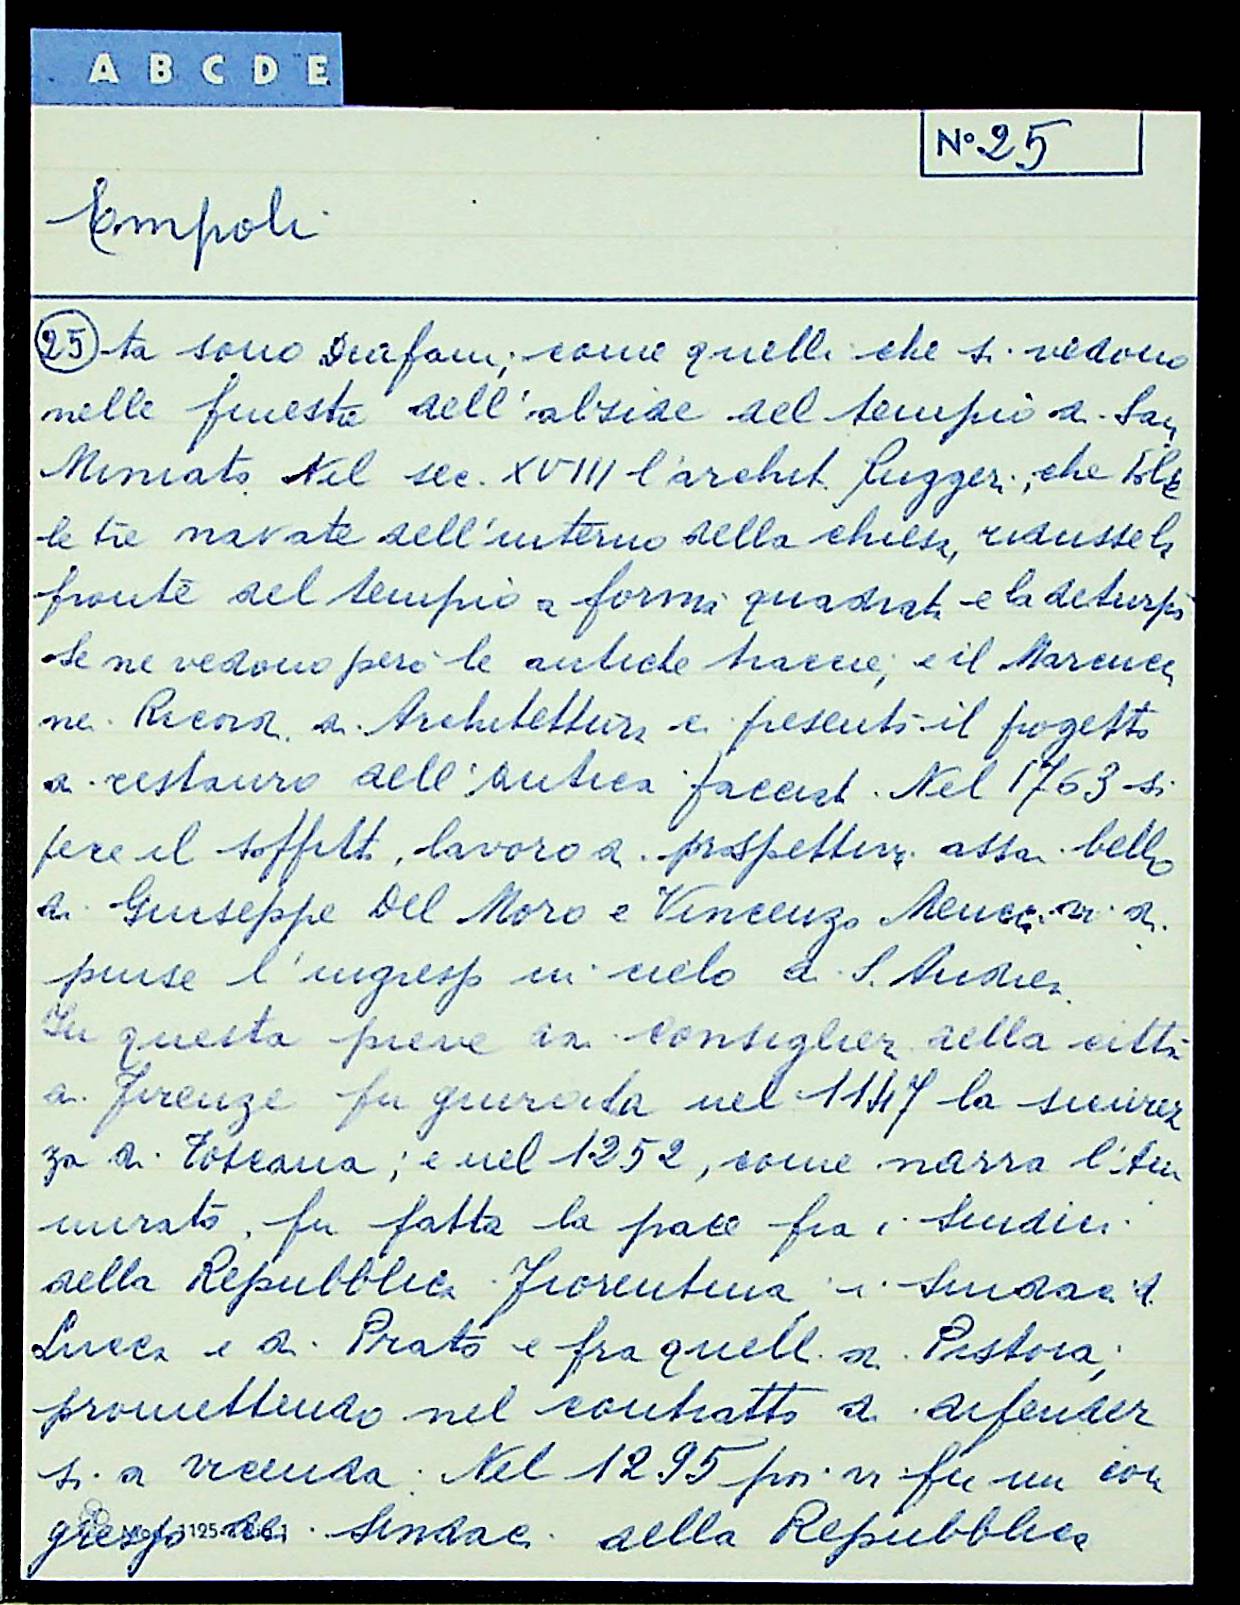 A B C D E
N° 25
Empoli
25 ta sono diafani, come quelli che si vedono
nelle finestre dell'abside del tempio di San
Miniato. Nel sec. XVIII l'archit. Ruggeri, che tolse
le tre navate dell'interno della chiesa, ridusse la
fronte del tempio a forma quadrata e la deturpò
Se ne vedono però le antiche traccie; e il Marcucci
nei Ricordi di Architettura ci presentò il progetto
di restauro dell'antica facciata. Nel 1763 si
fece il soffitto, lavoro di prospettiva assai bello
di Giuseppe Del Moro e Vincenzo Meucci vi di
pinse l'ingresso in cielo di S. Andrea.
In questa pieve dai consiglieri della città
di Firenze fu giurata nel 1147 la sicurez
za di Toscana; e nel 1252, come narra l'Am
mirato, fu fatta la pace fra i Sindici
della Repubblica Fiorentina, i Sindaci di
Lucca e di Prato e fra quelli di Pistoia;
promettendo nel contratto di difender
si a vicenda. Nel 1295 poi vi fu un con
gresso dei Sindaci della Repubblica